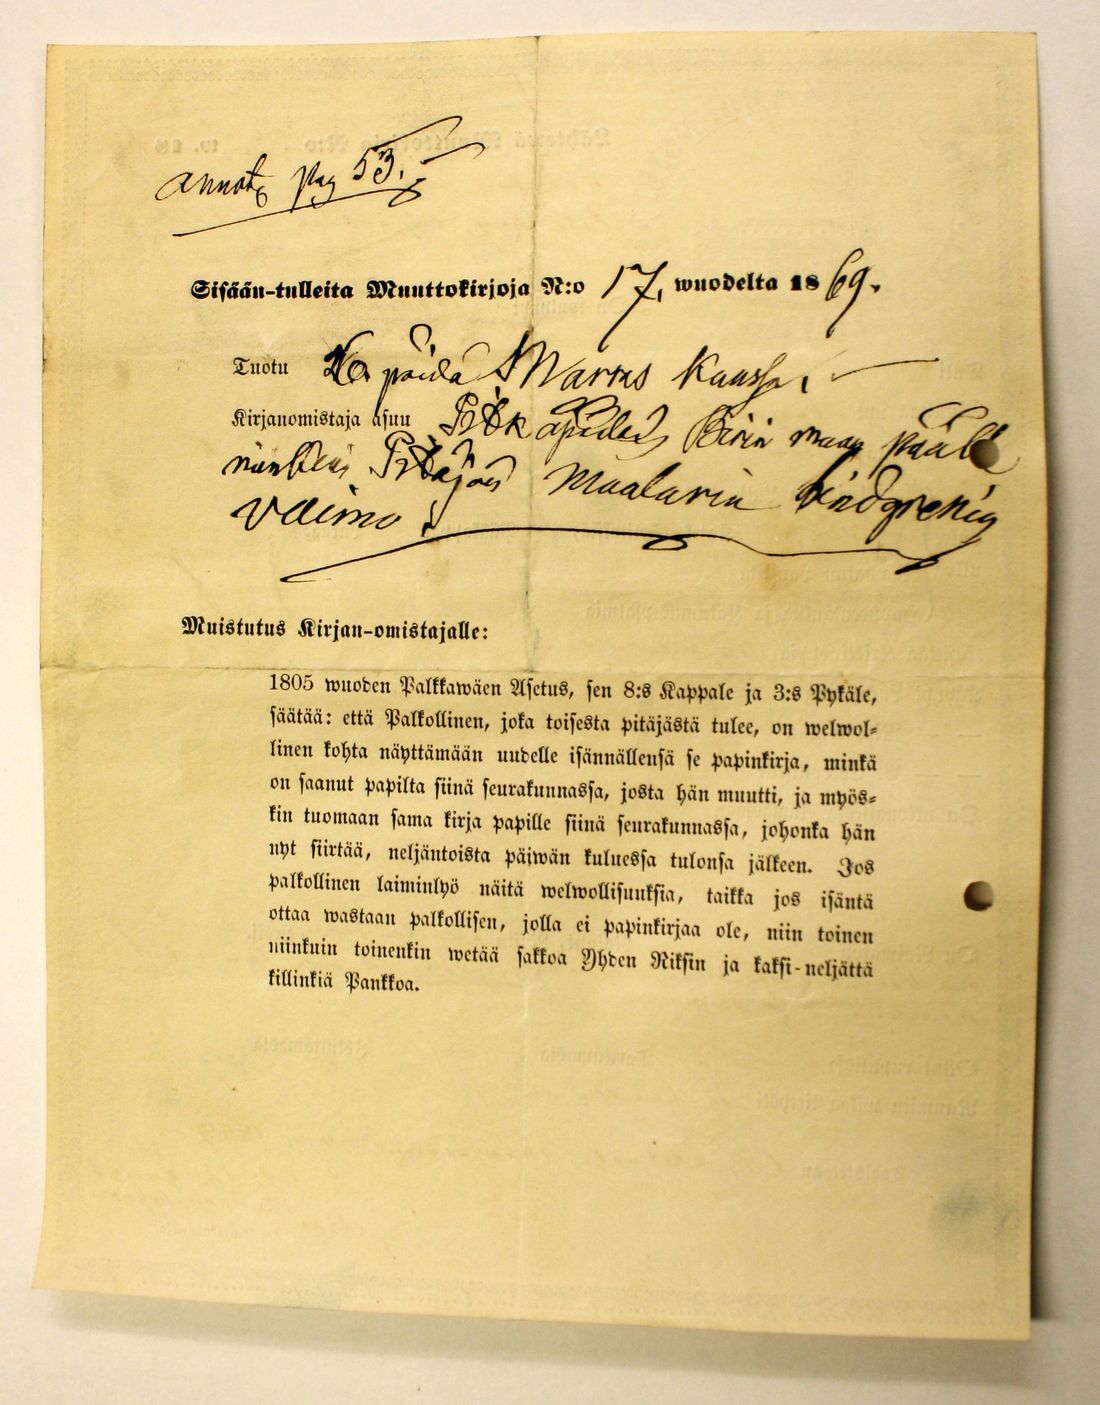 annot. pag 53.
Sisään-tulleita Muuttokirjoja N:o 17, wuodelta 1869.
Tuotu päivä Marras Kuussa,
Kirjanomistaja asuu maan päällä
Maalarin Lindgrenin
vaimo
Muistutus Kirjan-omistajalle:
1805 wuoden Palkkawäen Asetus, sen 8:s Kappale ja 3:s Pykäle,
säätää: että Palkollinen, joka toisesta pitäjästä tulee, on welwol-
linen kohta näyttämään uudelle isännällensä se papinkirja, minkä
on saanut papilta siinä seurakunnassa, josta hän muutti, ja myös-
kin tuomaan sama kirja papille siinä seurakunnassa, johonka hän
nyt siirtää, neljäntoista päiwän kuluessa tulonsa jälkeen. Jos
palkollinen laiminlyö näitä welwollisuuksia, taikka jos isäntä
ottaa wastaan palkollisen, jolla ei papinkirjaa ole, niin toinen
niinkuin toinenkin wetää sakkoa Yhden Riksin ja kaksi-neljättä
killinkiä Pankkoa.